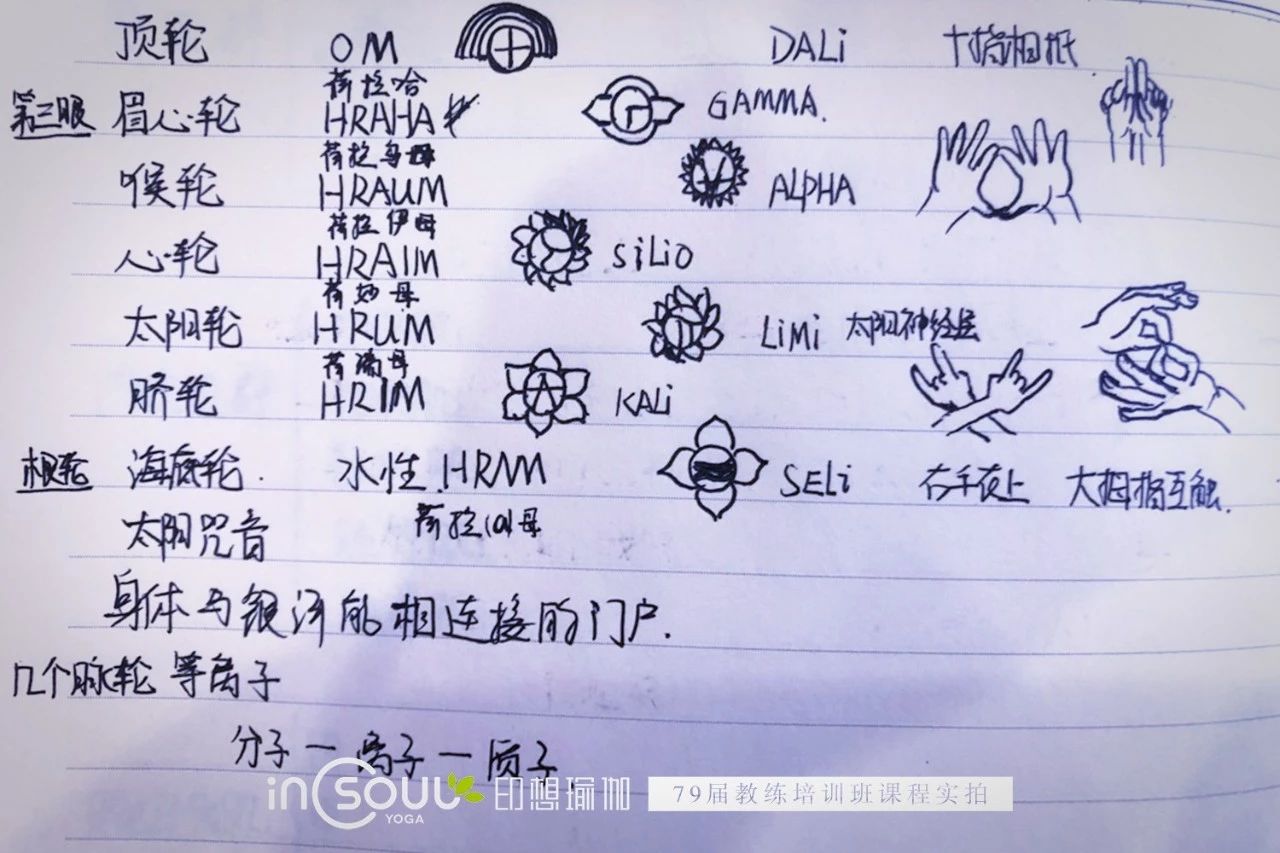 顶轮 OM DALi 十指相抵
荷拉哈
第三眼 眉心轮 HRAHA GAMMA.
荷拉乌母
喉轮 HRAUM ALPHA
荷拉伊母
心轮 HRAIM SiLiO
荷姆母
太阳轮 HRUM LiMi 太阳神经丛
荷瑞母
脐轮 HRIM KALi
根轮 海底轮. 水性 HRAM SELi 右手在上 大拇指互触.
太阳咒音 荷拉 母
身体与银河能相连接的门户.
几个脉轮 等离子
分子一离子一质子
inSOUL YOGA 印想瑜伽 79届教练培训班课程实拍